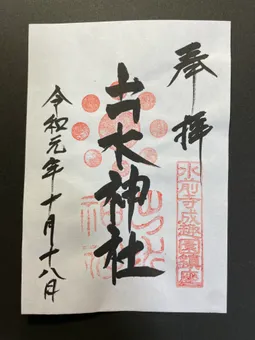 奉拝
水前寺成趣園鎮座
出水神社
令和元年十月十八日